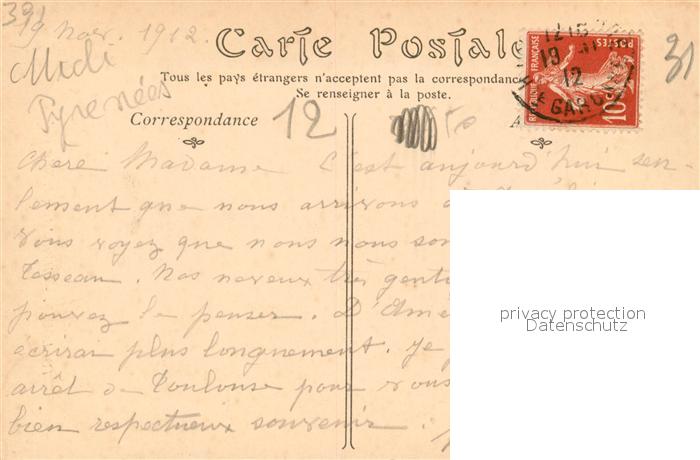 391
19 nov. 1912.
Midi
Pyrenées
Carte Postale
31
Tous les pays étrangers n'acceptent pas la correspondance
Se renseigner à la poste.
Correspondance
12
A
12 15
19
12
Hte GARONNE
REPUBLIQUE FRANÇAISE
POSTES
10
Chere Madame C'est aujourd'hui seu-
lement que nous arrivons
vous voyez que nous nous som
Tesseau. Nos neveux très genti
pouvez le penser. D'Amé
ecrirai plus longuement. Je
arrêt de Toulouse pour vous
bien respectueux souvenir.
privacy protection
Datenschutz